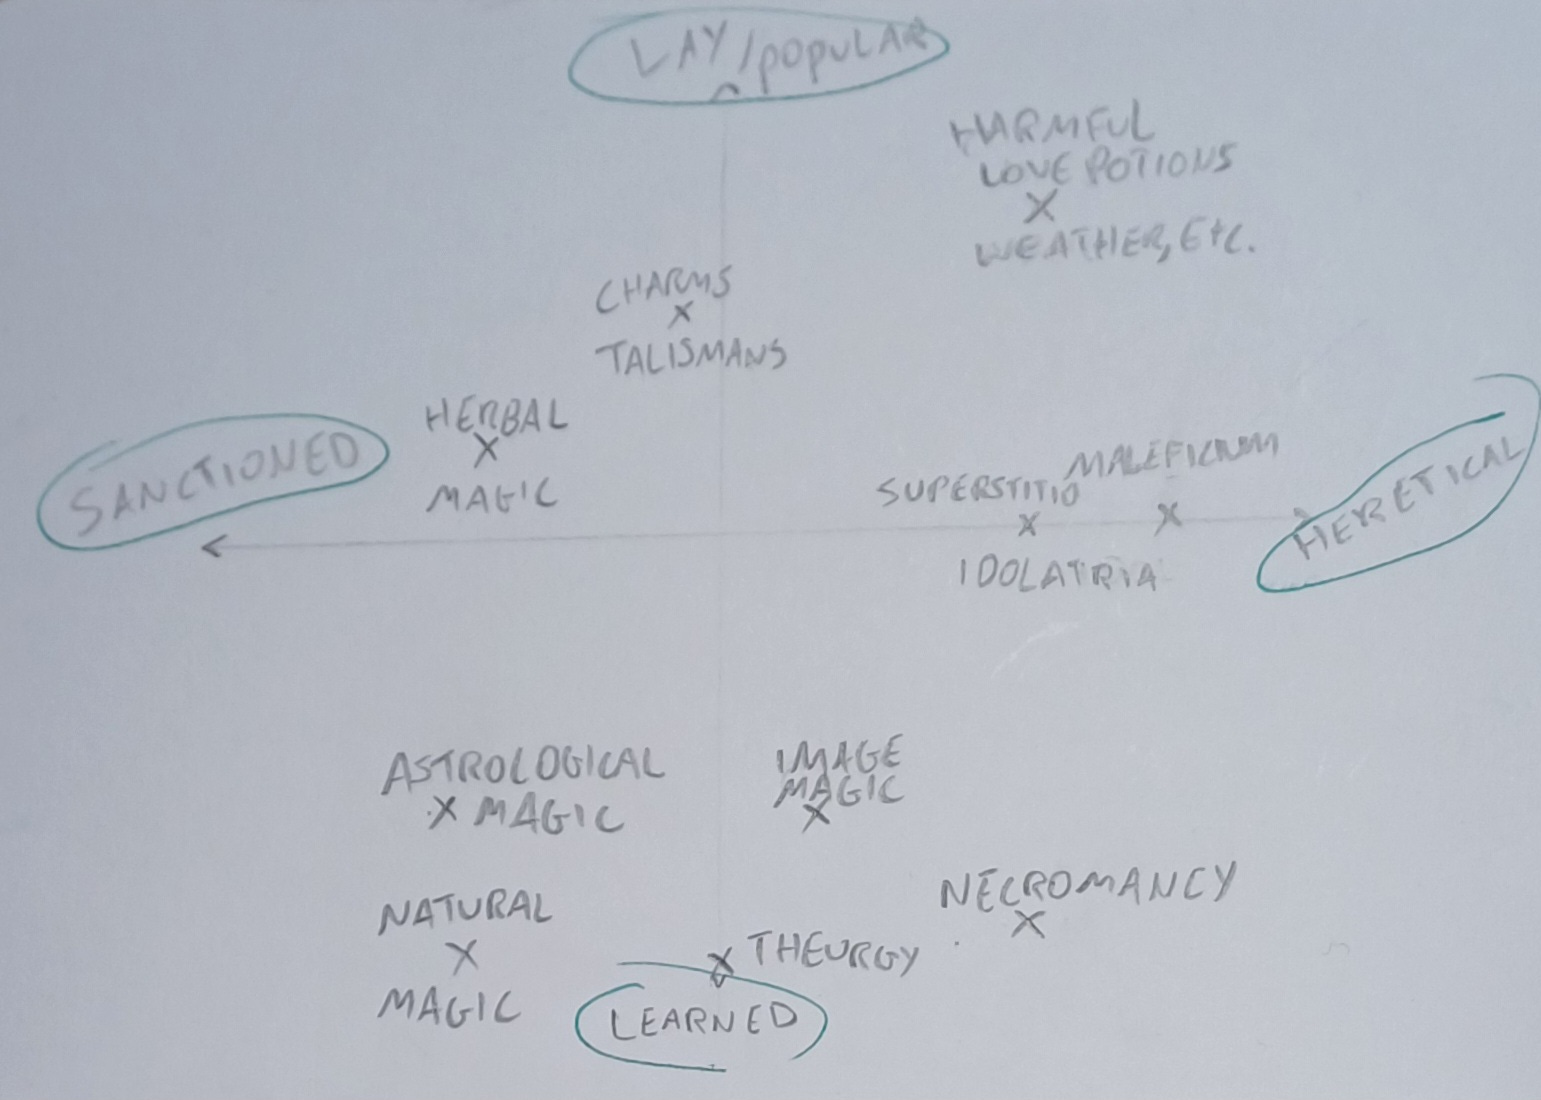 LAY/popULAR
HARMFUL
LOVE POTIONS
X
WEATHER, Etc.
CHARMS
X
TALISMANS
HERBAL
X
MAGIC
SANCTIONED
SUPERSTITIO
X
IDOLATRIA
MALEFICIUM
X
HERETICAL
ASTROLOGICAL
X MAGIC
IMAGE
MAGIC
X
NATURAL
X
MAGIC
X THEURGY
NECROMANCY
X
LEARNED